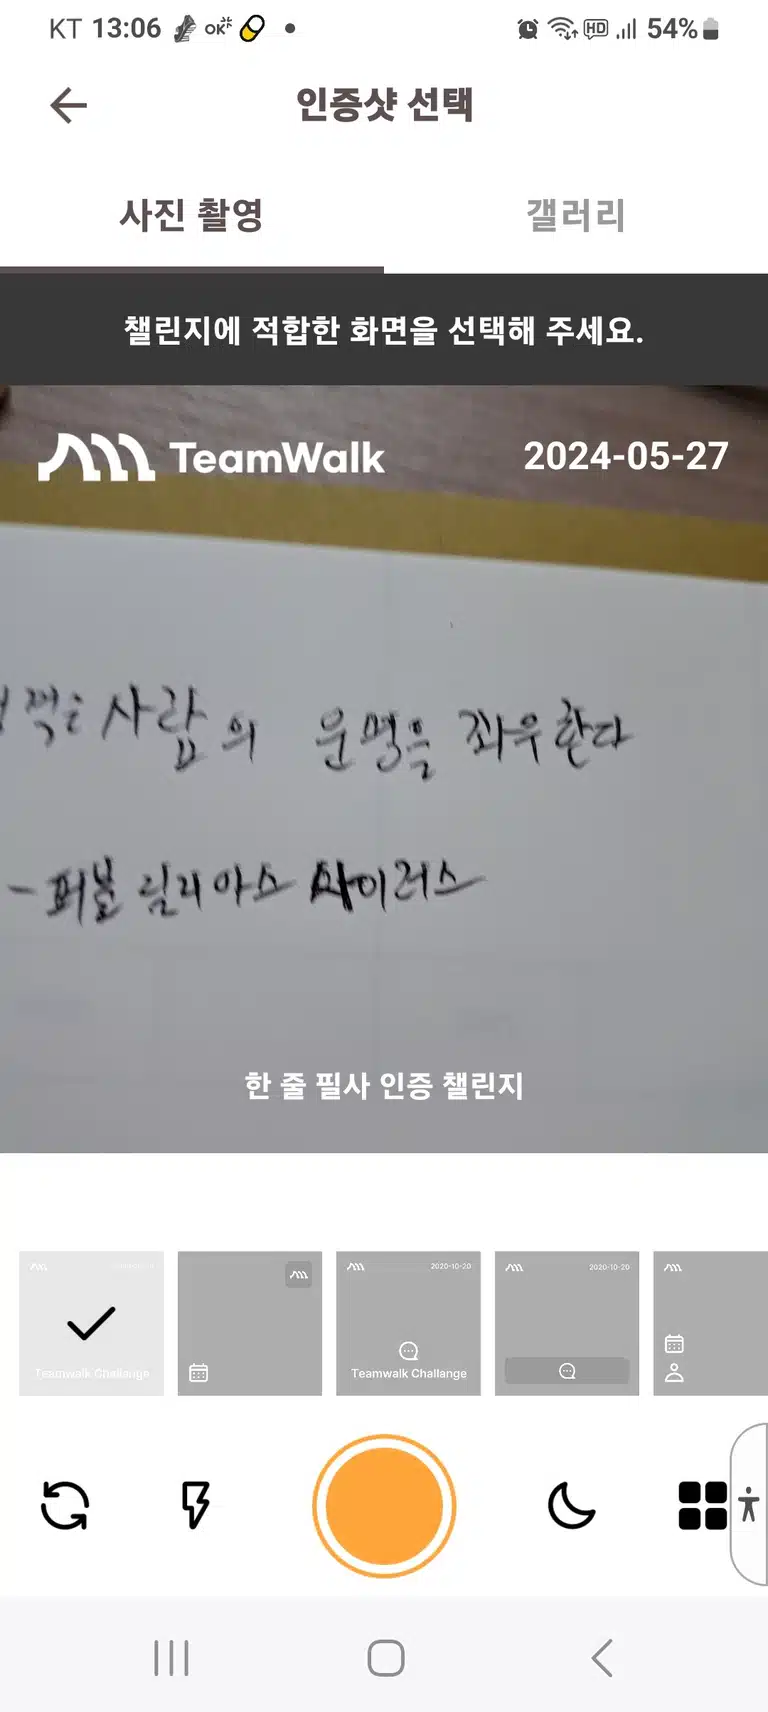 KT 13:06 OK 54%
인증샷 선택
사진 촬영 갤러리
챌린지에 적합한 화면을 선택해 주세요.
TeamWalk 2024-05-27
사람의 운명을 좌우한다
- 퍼블릴리아스 싸이러스
한 줄 필사 인증 챌린지
2020-10-20 2020-10-20
Teamwalk Challange Teamwalk Challange